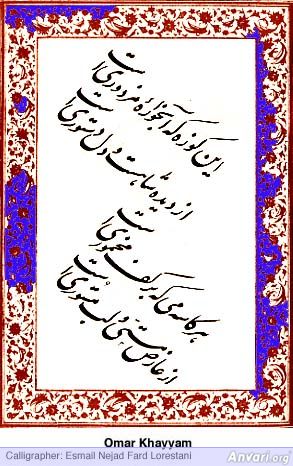 این کوزه که آبخواره مزدوری است
از دیده شاهیست و دل دستوری است
هر کاسه می که بر کف مخموری است
از عارض مستی و لب مستوری است
Omar Khayyam
Calligrapher: Esmail Nejad Fard Lorestani
Anvari.org